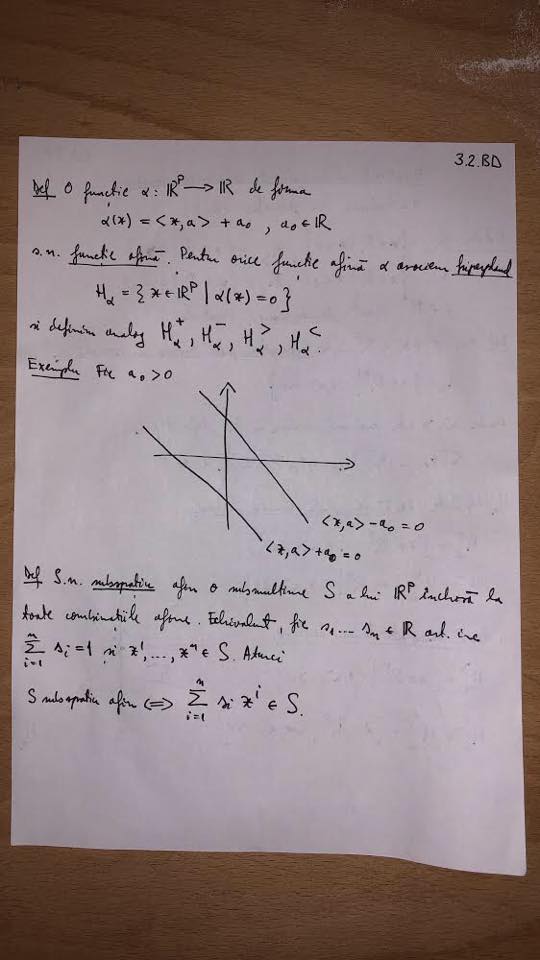 3.2.BD
Def O funcție α: ℝᵖ → ℝ de forma
α(x) = <x,a> + a₀ , a₀ ∈ ℝ
s.n. funcție afină. Pentru orice funcție afină α asociem hiperplanul
H_α = {x ∈ ℝᵖ | α(x) = 0}
și definim analog H_α⁺, H_α⁻, H_α^>, H_α^<.
Exemplu Fie a₀ > 0
<x,a> - a₀ = 0
<x,a> + a₀ = 0
Def S.n. subspațiu afin o submulțime S a lui ℝᵖ închisă la
toate combinațiile afine. Echivalent, fie s₁ ... sₙ ∈ ℝ
∑_{i=1}^{n} sᵢ = 1 și x¹,..., xⁿ ∈ S. Atunci
S subspațiu afin <=> ∑_{i=1}^{n} sᵢ xⁱ ∈ S.